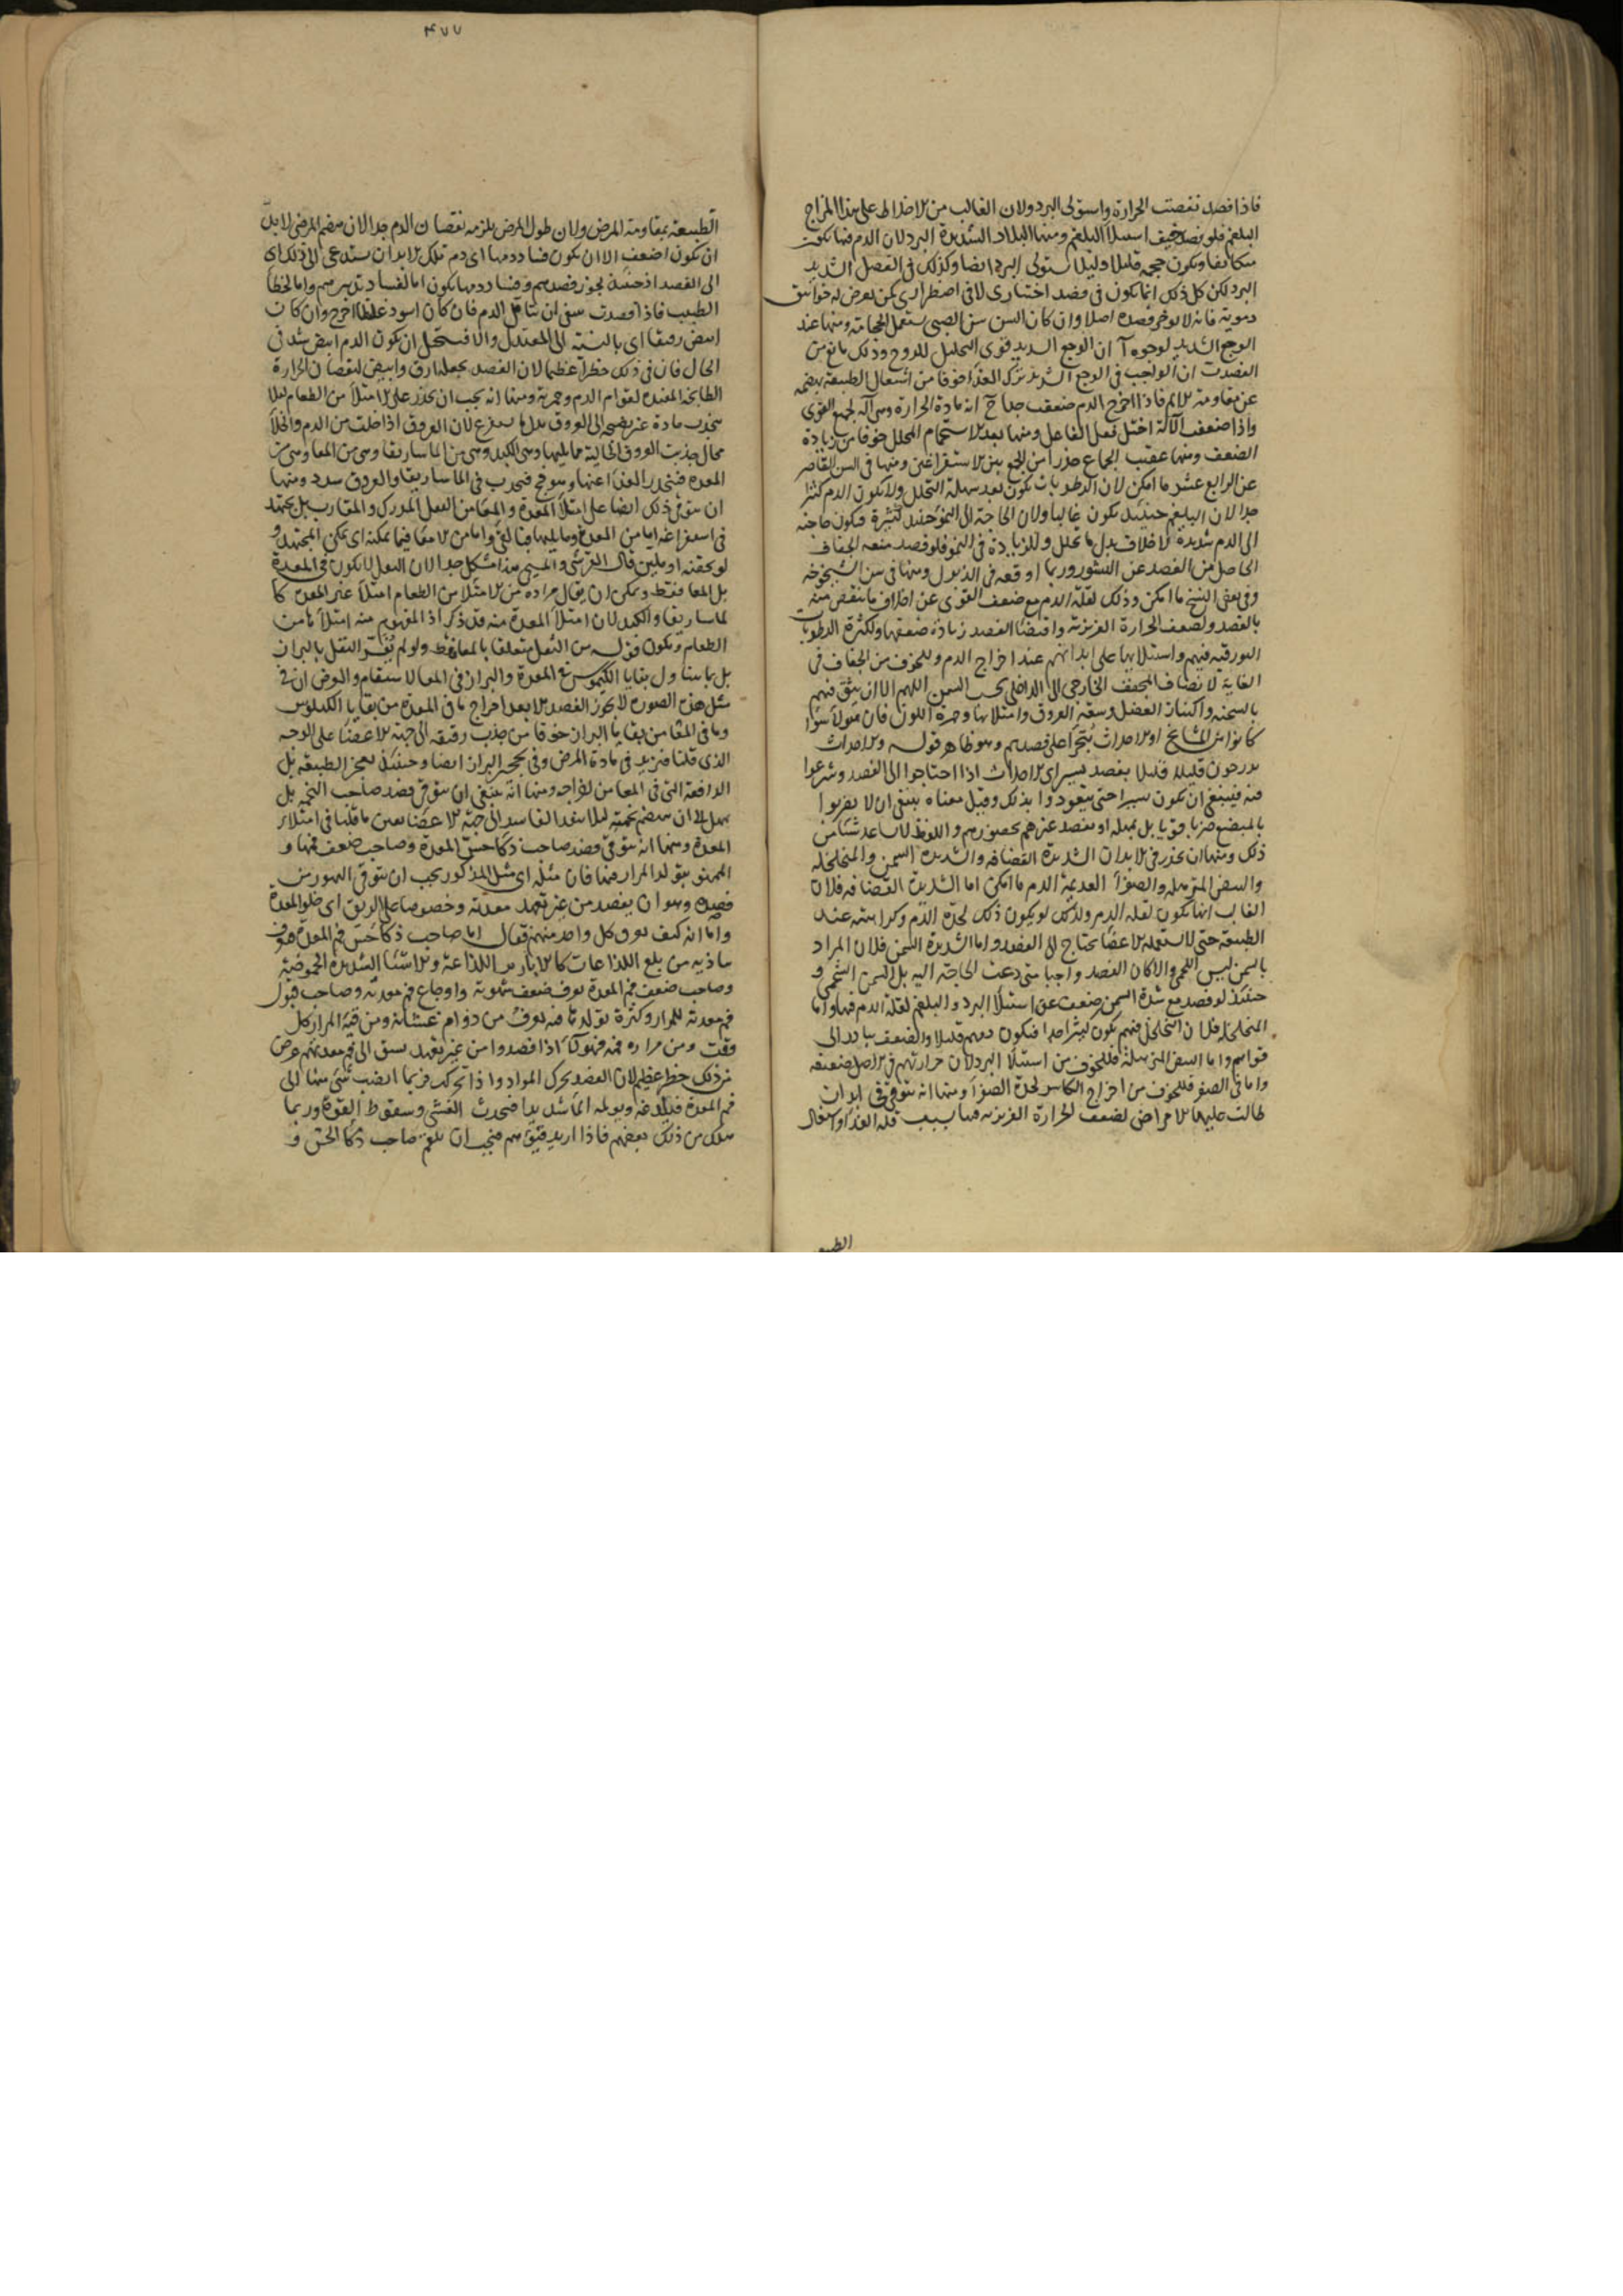 فاذا فصد نقصت الحرارة واستولى البرد ولان الغالب من الاخلاط على هذا المزاج
البلغم فلو فصد خيف استيلاء البلغم ومنها البلاد الشديدة البرد لان الدم فيها يكون
متكاثفا ويكون حجمه قليلا استولى البرد ايضا وكذلك في الفصل الشديد
البرد لكن كل ذلك انما يكون في فصد اختيارى لا في اضطرارى كمن يعرض له خوانيق
دموية فانه لا يؤخر فصده اصلا وان كان السن سن الصبى يستعمل الحجامة ومنها عند
الوجع الشديد لوجوه آ ان الوجع الشديد قوى التحليل للروح وذلك مانع من
الفصد ب ان الواجب فى الوجع الشديد ترك الغذا خوفا من اشتغال الطبيعة بهضمه
عن مقاومة الالم فاذا اخرج الدم ضعفت جدا ج انه مادة الحرارة وهى آلة لجميع القوى
واذا ضعف الآلة اختل فعل الفاعل ومنها بعد الاستحمام المحلل خوفا من زيادة
الضعف ومنها عقيب الجماع حذرا من الجمع بين الاستفراغين ومنها فى السن القاصر
عن الرابع عشر ما امكن لان الرطوبات تكون بعد سهلة التحلل ولا يكون الدم كثيرا
جدا لان البلغم حينئذ يكون غالبا ولان الحاجة الى النمو حينئذ كثيرة فيكون حاجته
الى الدم شديدة لاخلاف بدل ما تحلل وللزيادة فى النمو فلو فصد منعه الجفاف
الحاصل من الفصد عن النشو وربما اوقعه فى الذبول ومنها فى سن الشيخوخة
وفى بعض النسخ ما امكن وذلك لقلة الدم مع ضعف القوى عن اخلاف ما ينقص منه
بالفصد ولضعف الحرارة الغريزية واقتضا الفصد زيادة ضعفها ولكثرة الرطوبات
البورقية فيهم واستيلائها على ابدانهم عند اخراج الدم وللخوف من الجفاف فى
الغاية لانضياف المجفف الخارجى الى الداخلى اللهم الا ان يثق فيهم
بالسحنة واكتناز العضل وسعة العروق وامتلائها وحمرة اللون فان هولاء سواء
كانوا من المشايخ او الاحداث يتجرا على فصدهم وهو ظاهر قوله والاحداث
يدرجون قليلا قليلا بفصد يسير اى الاحداث اذا احتاجوا الى الفصد وشرعوا
فيه فينبغى ان يكون يسيرا حتى يتعودوا بذلك وقيل معناه ينبغى ان لا يضربوا
بالمبضع ضربا قويا بل بمهلة او يفصد غيرهم بحضورهم واللفظ لا يساعد شيئا من
ذلك ومنها ان يحذر فى الابدان الشديدة القضافة والشديدة السمن والمتخلخلة
والبيض المترهلة والصفراء العديمة الدم ما امكن اما الشديدة القضافة فلان
الغالب انها تكون لقلة الدم
الطبيعة حتى لا تستعمله الاعضا يحتاج الى الفصد واما الشديدة السمن فلان المراد
بالسمن ليس اللحمى والا كان الفصد واجبا متى دعت الحاجة اليه بل السمن الشحمى و
حينئذ لو فصد مع شدة السمن ضعف عن استيلاء البرد والبلغم لقلة الدم فيها واما
المتخلخلة فلان التخلخل فيهم يكون كثيرا جدا فيكون دمهم قليلا والضعف يبادر الى
قواهم واما البيض المترهلة فللخوف من استيلا البرد لان حرارتهم فى الاصل ضعيفة
واما فى الصفر فللخوف من اخراج الكاسر لحدة الصفراء ومنها انه يتوقى فى ابدان
طالت عليها الامراض لضعف الحرارة الغريزية فيها بسبب قلة الغذا واشتغال
الطبيعـ
٤٧٧
الطبيعة بمقاومة المرض ولان طول المرض يلزمه نقصان الدم جدا لان هضم المرضى لا بد
ان يكون اضعف الا ان يكون فساد دمها اى دم تلك الابدان يستدعى الى ذلك اى
الى الفصد اذ حينئذ يجوز فصدهم وفساد دمها يكون اما لفساد تدبيرهم واما لخطأ
الطبيب فاذا فصدت ينبغى ان يتامل الدم فان كان اسود غليظا اخرج وان كان
ابيض رقيقا اى بالنسبة الى المعتدل والا فيستحيل ان يكون الدم ابيض شد فى
الحال فان فى ذلك خطرا عظيما لان الفصد يجعله ارق وابيض لنقصان الحرارة
الطابخة المفيدة لقوام الدم وحمرته ومنها انه يجب ان يحذر على الامتلاء من الطعام لئلا
ينجذب مادة غير نضيجة الى العروق بدل ما يستفرغ لان العروق اذا خلت من الدم والخلاء
محال جذبت العروق الخالية مما يليها وهى الكبد وهى من الماساريقا وهى من المعا وهى من
المعدة فينحدر الغذا عنها وهو فج فيحدث فى الماساريقا والعروق سدد ومنها
ان يتوقى ذلك ايضا على امتلاء المعدة والمعا من الثفل المدرك والمقارب بل يجتهد
فى استفراغه اما من المعدة وما يليها فبالقئ واما من الامعا فبما يمكنه اى يمكن المجتهد و
لو بحقنة او ملين قال القرشى والمسيحى هذا مشكل جدا لان الثفل لا يكون فى المعدة
بل المعا فقط ويمكن ان يقال مراده من الامتلا من الطعام امتلاء غير المعدة كا
لماساريقا والكبد لان امتلاء المعدة منه قد ذكر اذ المفهوم منه امتلاء ما من
الطعام ويكون قوله من الثفل متعلقا بالمعا فقط ولو لم يفسر الثفل بالبراز
بل بما يتناول بقايا الكيموس فى المعدة والبراز فى المعا لاستقام والغرض ان فى
مثل هذه الصورة لا يجوز الفصد الا بعد اخراج ما فى المعدة من بقايا الكيلوس
وما فى المعا من بقايا البراز خوفا من جذب رقيقه الى جهة الاعضا على الوجه
الذى قلنا فيزيد فى مادة المرض وفى تحجير البراز ايضا وحينئذ يعجز الطبيعة بل
الدافعة التى فى المعا من اخراجه ومنها انه ينبغى ان يتوقى فصد صاحب التخمة بل
يمهل الى ان ينهضم تخمته لئلا ينفذ الفاسد الى جهة الاعضا بعين ما قلنا فى امتلاء
المعدة ومنها انه يتوقى فصد صاحب ذكاء حس المعدة وصاحب ضعف فمها و
الممنو بتولد المرار فيها فان مثله اى مثل المذكور يجب ان يتوقى التهور من
فصده وهو ان يفصد من غير تعهد معدته وخصوصا على الريق اى خلو المعدة
واما انه كيف يعرف كل واحد منهم فقال اما صاحب ذكاء حس فم المعدة فيعرف
بتاذيه من بلع اللذاعات كالابازير اللذاعة والاشيا الشديدة الحموضة
وصاحب ضعف فم المعدة يعرف ضعف شهوته واوجاع فم معدته وصاحب قبول
فم معدته للمرار وكثرة تولدها فيه يعرف من دوام غشيانه ومن قيئه المرار كل
وقت ومن مرارة فمه فهولاء اذا فصدوا من غير تعهد يسبق الى فم معدتهم عرض
من ذلك خطر عظيم لان الفصد يحرك المواد واذا تحركت فربما انصب شئ منها الى
فم المعدة فيلدغه ويولمه الما شديدا فيحدث الغشى وسقوط القوة وربما
هلك من ذلك بعضهم فاذا اريد فصدهم فيجب ان يلقم صاحب ذكاء الحس و